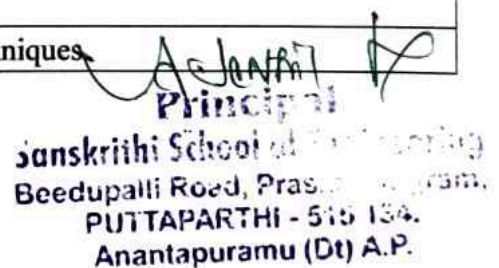 niques
Principal
Sanskrithi School of
Beedupalli Road,
PUTTAPARTHI - 515 134.
Anantapuramu (Dt) A.P.